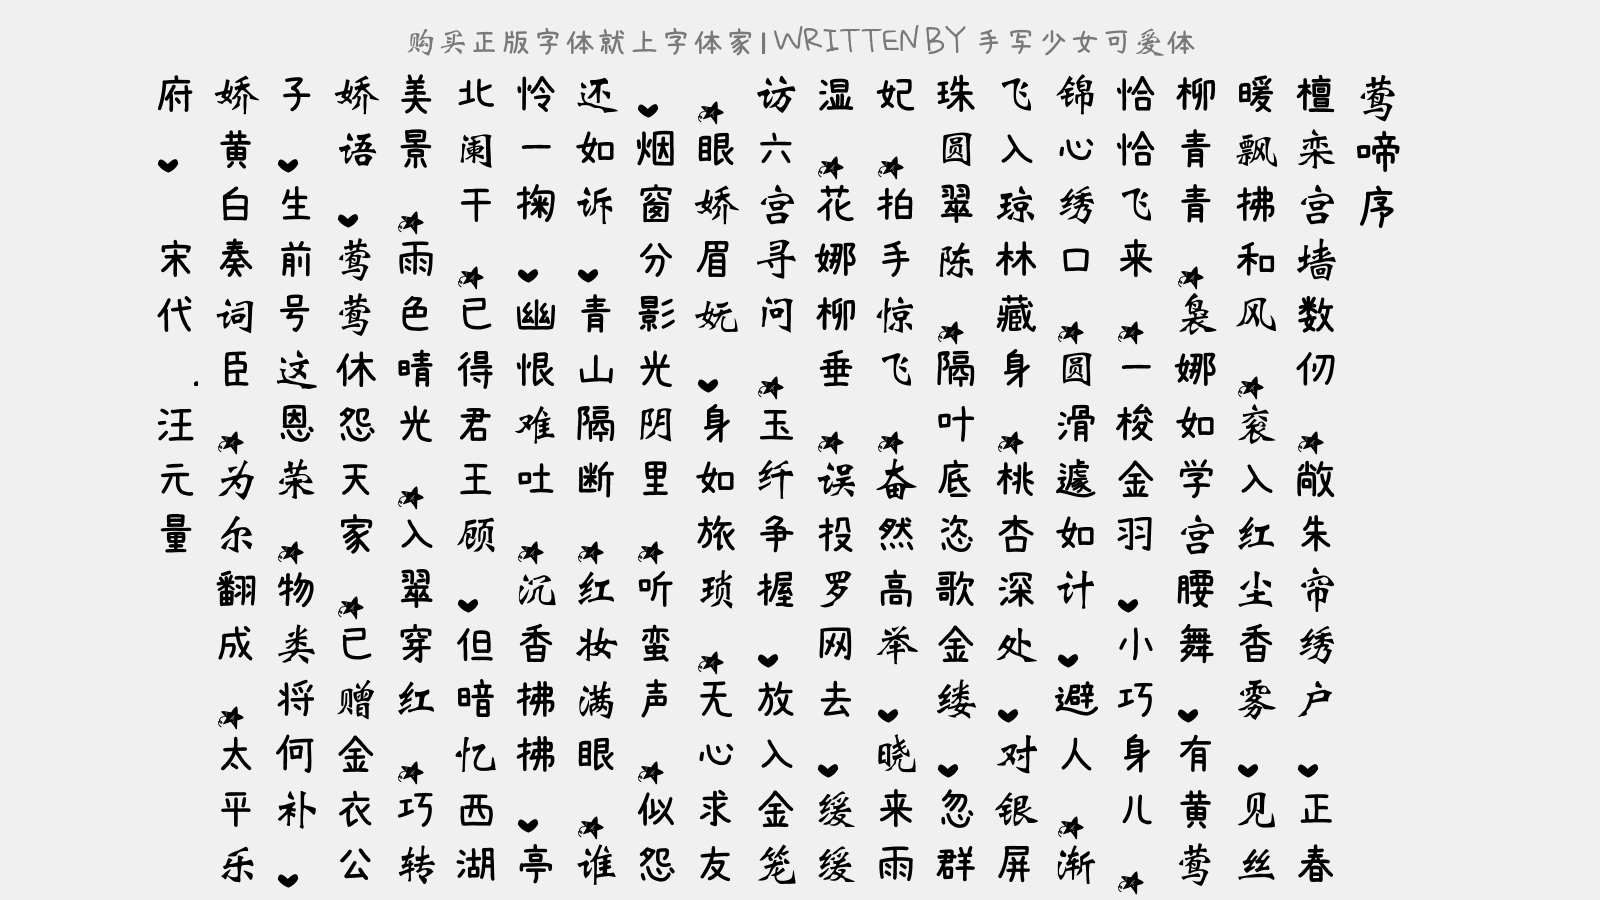 购买正版字体就上字体家|WRITTEN BY 手写少女可爱体
莺啼序
檀栾宫墙数仞敞朱帘绣户正春
暖飘拂和风衮入红尘香雾见丝
柳青青袅娜如学宫腰舞有黄莺
恰恰飞来一梭金羽小巧身儿
锦心绣口圆滑遽如计避人渐
飞入琼林藏身桃杏深处对银屏
珠圆翠陈隔叶底恣歌金缕忽群
妃拍手惊飞奋然高举晓来雨
湿花娜柳垂误投罗网去缓缓
访六宫寻问玉纤争握放入金笼
眼娇眉妩身如旅琐无心求友
烟窗分影光阴里听蛮声似怨
还如诉青山隔断红妆满眼谁
怜一掬幽恨难吐沉香拂拂亭
北阑干已得君王顾但暗忆西湖
美景雨色晴光入翠穿红巧转
娇语莺莺休怨天家已赠金衣公
子生前号这恩荣物类将何补
娇黄白奏词臣为尔翻成太平乐
府 宋代.汪元量